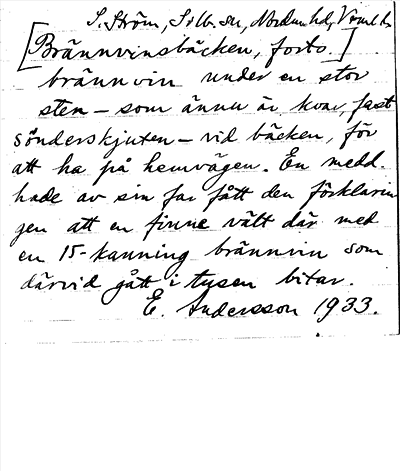 S. Ström, Silb. sn, Nordm. hd, Vrml. l.
[Brännvinsbäcken, forts.]
brännvin under en stor
sten – som ännu är kvar, fast
sönderskjuten – vid bäcken, för
att ha på hemvägen. En medd.
hade av sin far fått den förklarin
gen att en finne vält där med
en 15-kanning brännvin som
därvid gått i tusen bitar.
E. Andersson 1933.